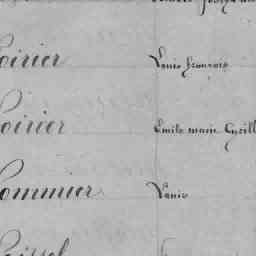 oirier Louis françois
oirier Emile marie Cyrill
ommier Louis